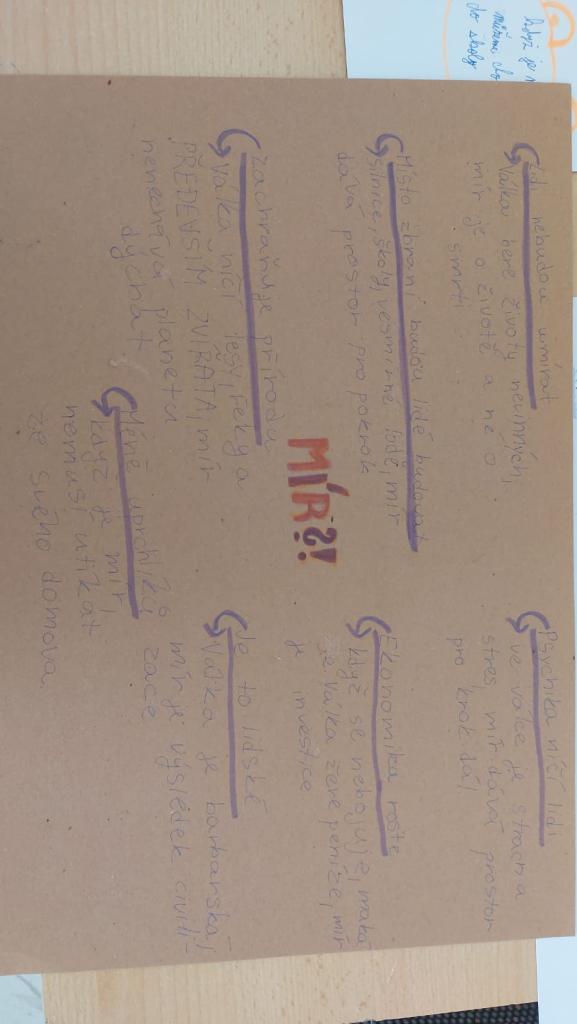 když je m
můžeme cho
do školy
Lidi nebudou umírat
válka bere životy nevinných,
mír je o životě a ne o
smrti
Místo zbraní budou lidé budovat
silnice, školy, vesmírné lodě, mír
dává prostor pro pokrok
Zachraňuje přírodu
válka ničí lesy, řeky a
PŘEDEVŠÍM ZVÍŘATA, mír
nenechává planetu
dýchat
Méně uprchlíků
když je mír,
nemusí utíkat
ze svého domova
MÍR?!
Psychika ničí lidi
ve válce je strach a
stres, mír dává prostor
pro krok dál
Ekonomika roste
když se nebojuje, maká
se válka žere peníze, mír
je investice
Je to lidské
válka je barbarská,
mír je výsledek civili-
zace